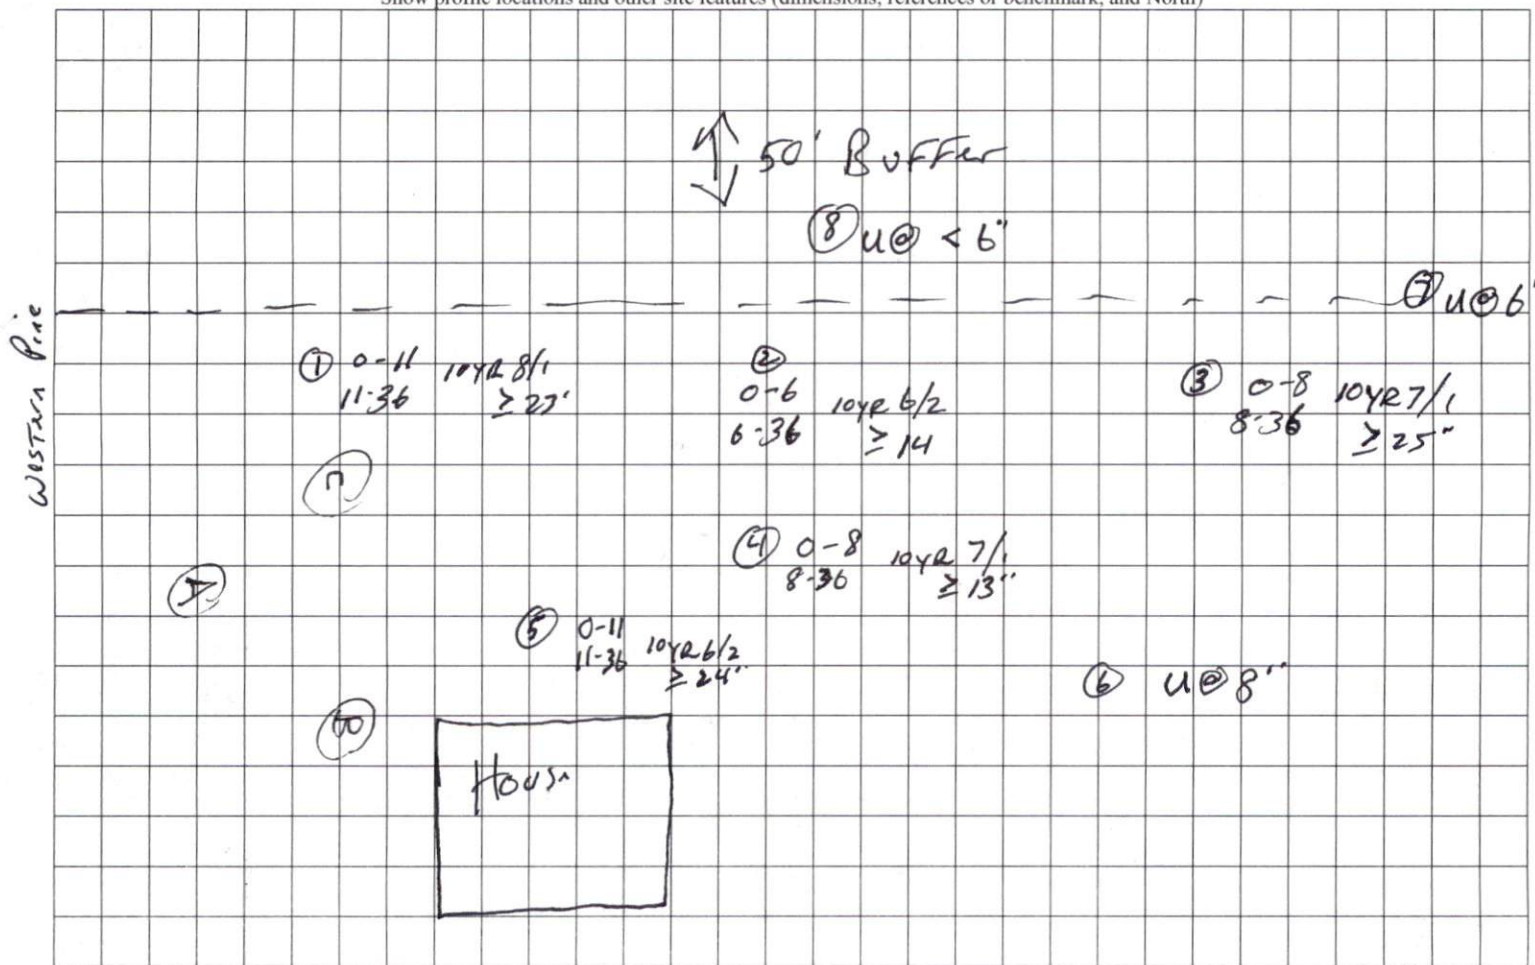 Show profile locations and other site features (dimensions, references or benchmark, and North)
50' Buffer
⑧ U@ < 6"
⑦ U@ 6"
Western Pine
① 0-11 10YR 8/1
11-36
②
0-6 10YR 6/2
6-36 ≥ 14
③ 0-8 10YR 7/1
8-36 ≥ 25"
④ 0-8 10YR 7/1
8-36 ≥ 13"
⑤ 0-11 10YR 6/2
11-36 ≥ 24"
⑥ U@ 8"
House